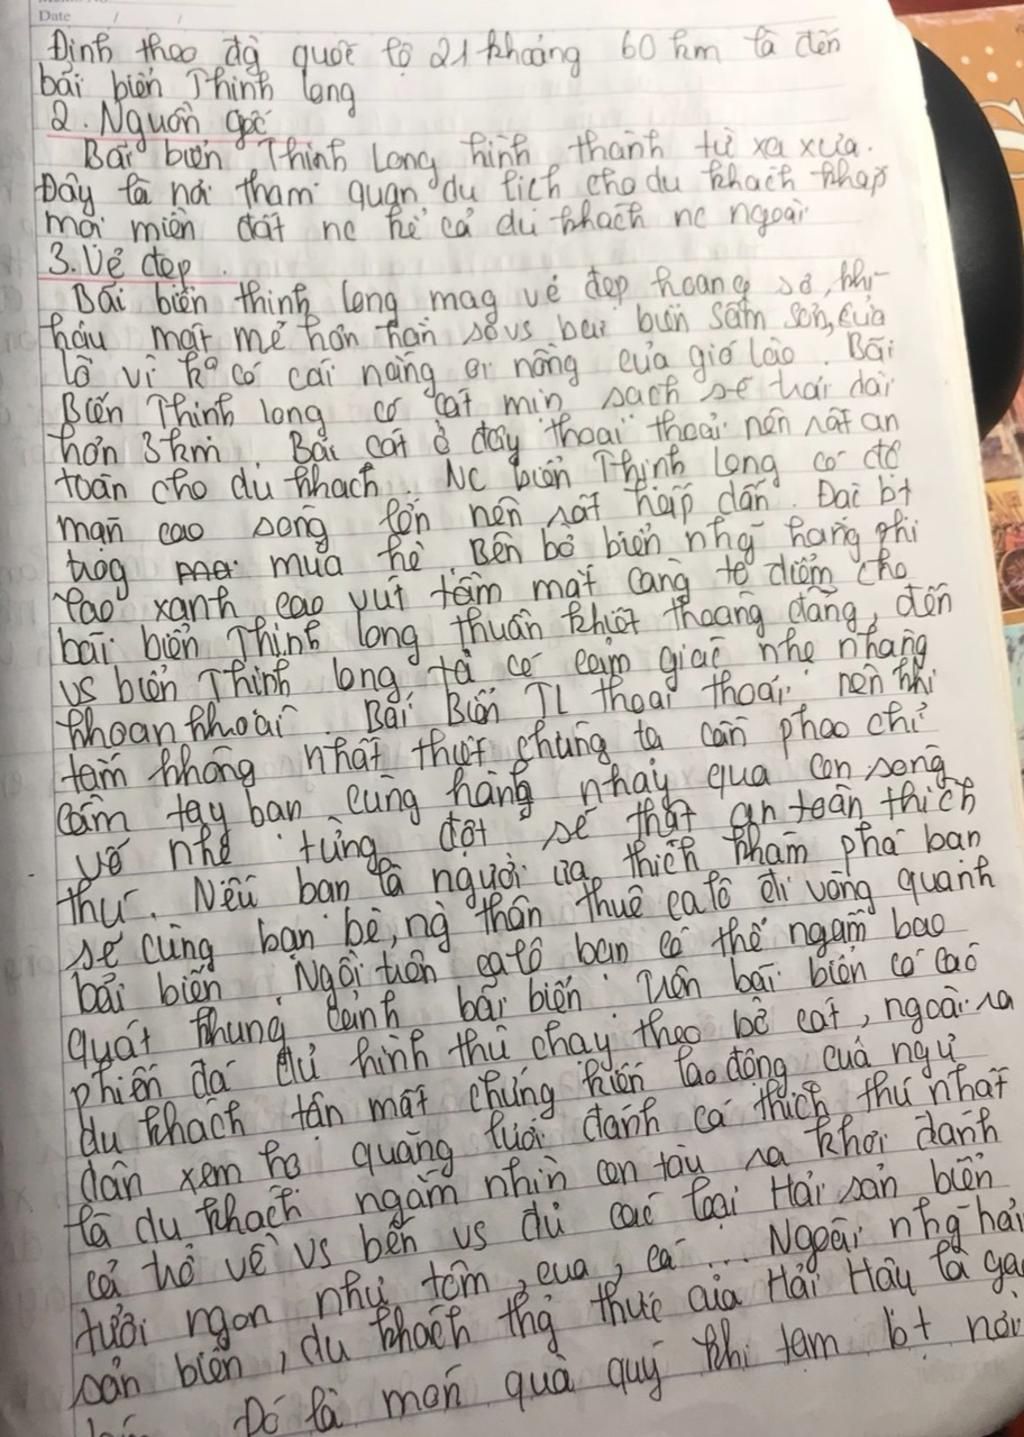 Date / /
Định theo đg quốc lộ 21 khoảng 60 km là đến
bãi biển Thịnh long
2. Nguồn gốc
Bãi biển Thịnh Long hình thành từ xa xưa.
Đây là nơi tham quan du lịch cho du khách khắp
mọi miền đất nc kể cả du khách nc ngoài
3. Vẻ đẹp.
Bãi biển thịnh long mag vẻ đẹp hoang sơ, khí
hậu mát mẻ hơn hẳn so vs bãi biển Sầm Sơn, Cửa
lò vì ko có cái nắng oi nồng của gió lào. Bãi
Biển Thịnh long có cát mịn sạch sẽ trải dài
hơn 3km. Bãi cát ở đây thoai thoải nên rất an
toàn cho du khách. Nc biển Thịnh Long có độ
mặn cao sóng lớn nên rất hấp dẫn. Đặc bt
trog mùa hè. Bên bờ biển nhg hàng phi
lao xanh cao vút tầm mắt càng tô điểm cho
bãi biển Thịnh long thuần khiết thoáng đãng, đến
vs biển Thịnh long ta có cảm giác nhẹ nhàng
khoan khoái. Bãi Biển TL thoai thoải nên khi
tắm không nhất thiết chúng ta cần phao chỉ
cầm tay bạn cùng hàng nhảy qua con sóng
vỗ nhẹ từng đợt sẽ thật an toàn thích
thú. Nếu bạn là người ưa thích khám phá bạn
sẽ cùng bạn bè, ng thân thuê ca lô đi vòng quanh
bãi biển. Ngồi trên ca lô bạn có thể ngắm bao
quát khung cảnh bãi biển. Trên bãi biển có các
phiến đá đủ hình thù chạy theo bờ cát, ngoài ra
du khách tận mắt chứng kiến lao động của ngư
dân xem họ quăng lưới đánh cá thích thú nhất
là du khách ngắm nhìn con tàu ra khơi đánh
cá trở về vs bến vs đủ các loại Hải sản biển
tươi ngon như tôm, cua, cá ... Ngoài nhg hải
sản biển, du khách thg thức của Hải Hậu là gạ
Đó là món quà quý khi tạm bt nơi